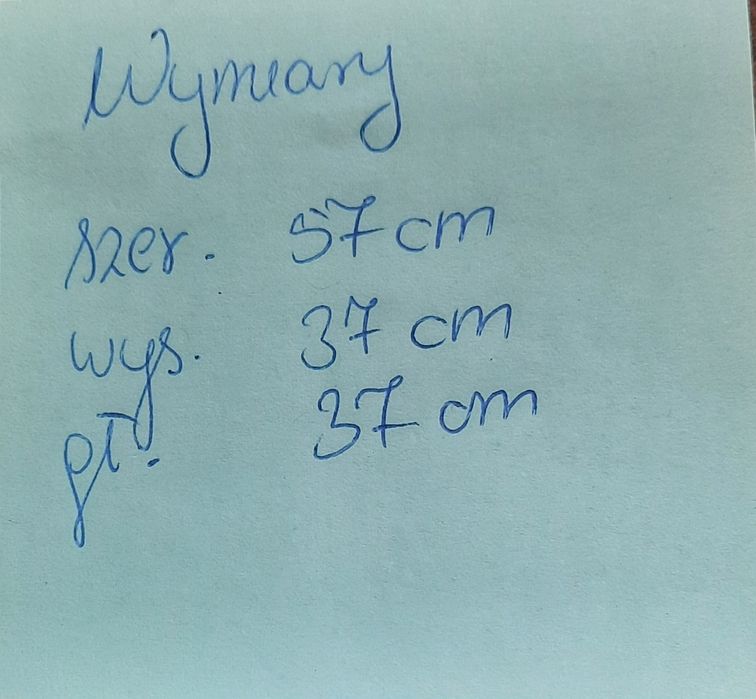 Wymiary
szer. 57 cm
wys. 37 cm
gł. 37 cm